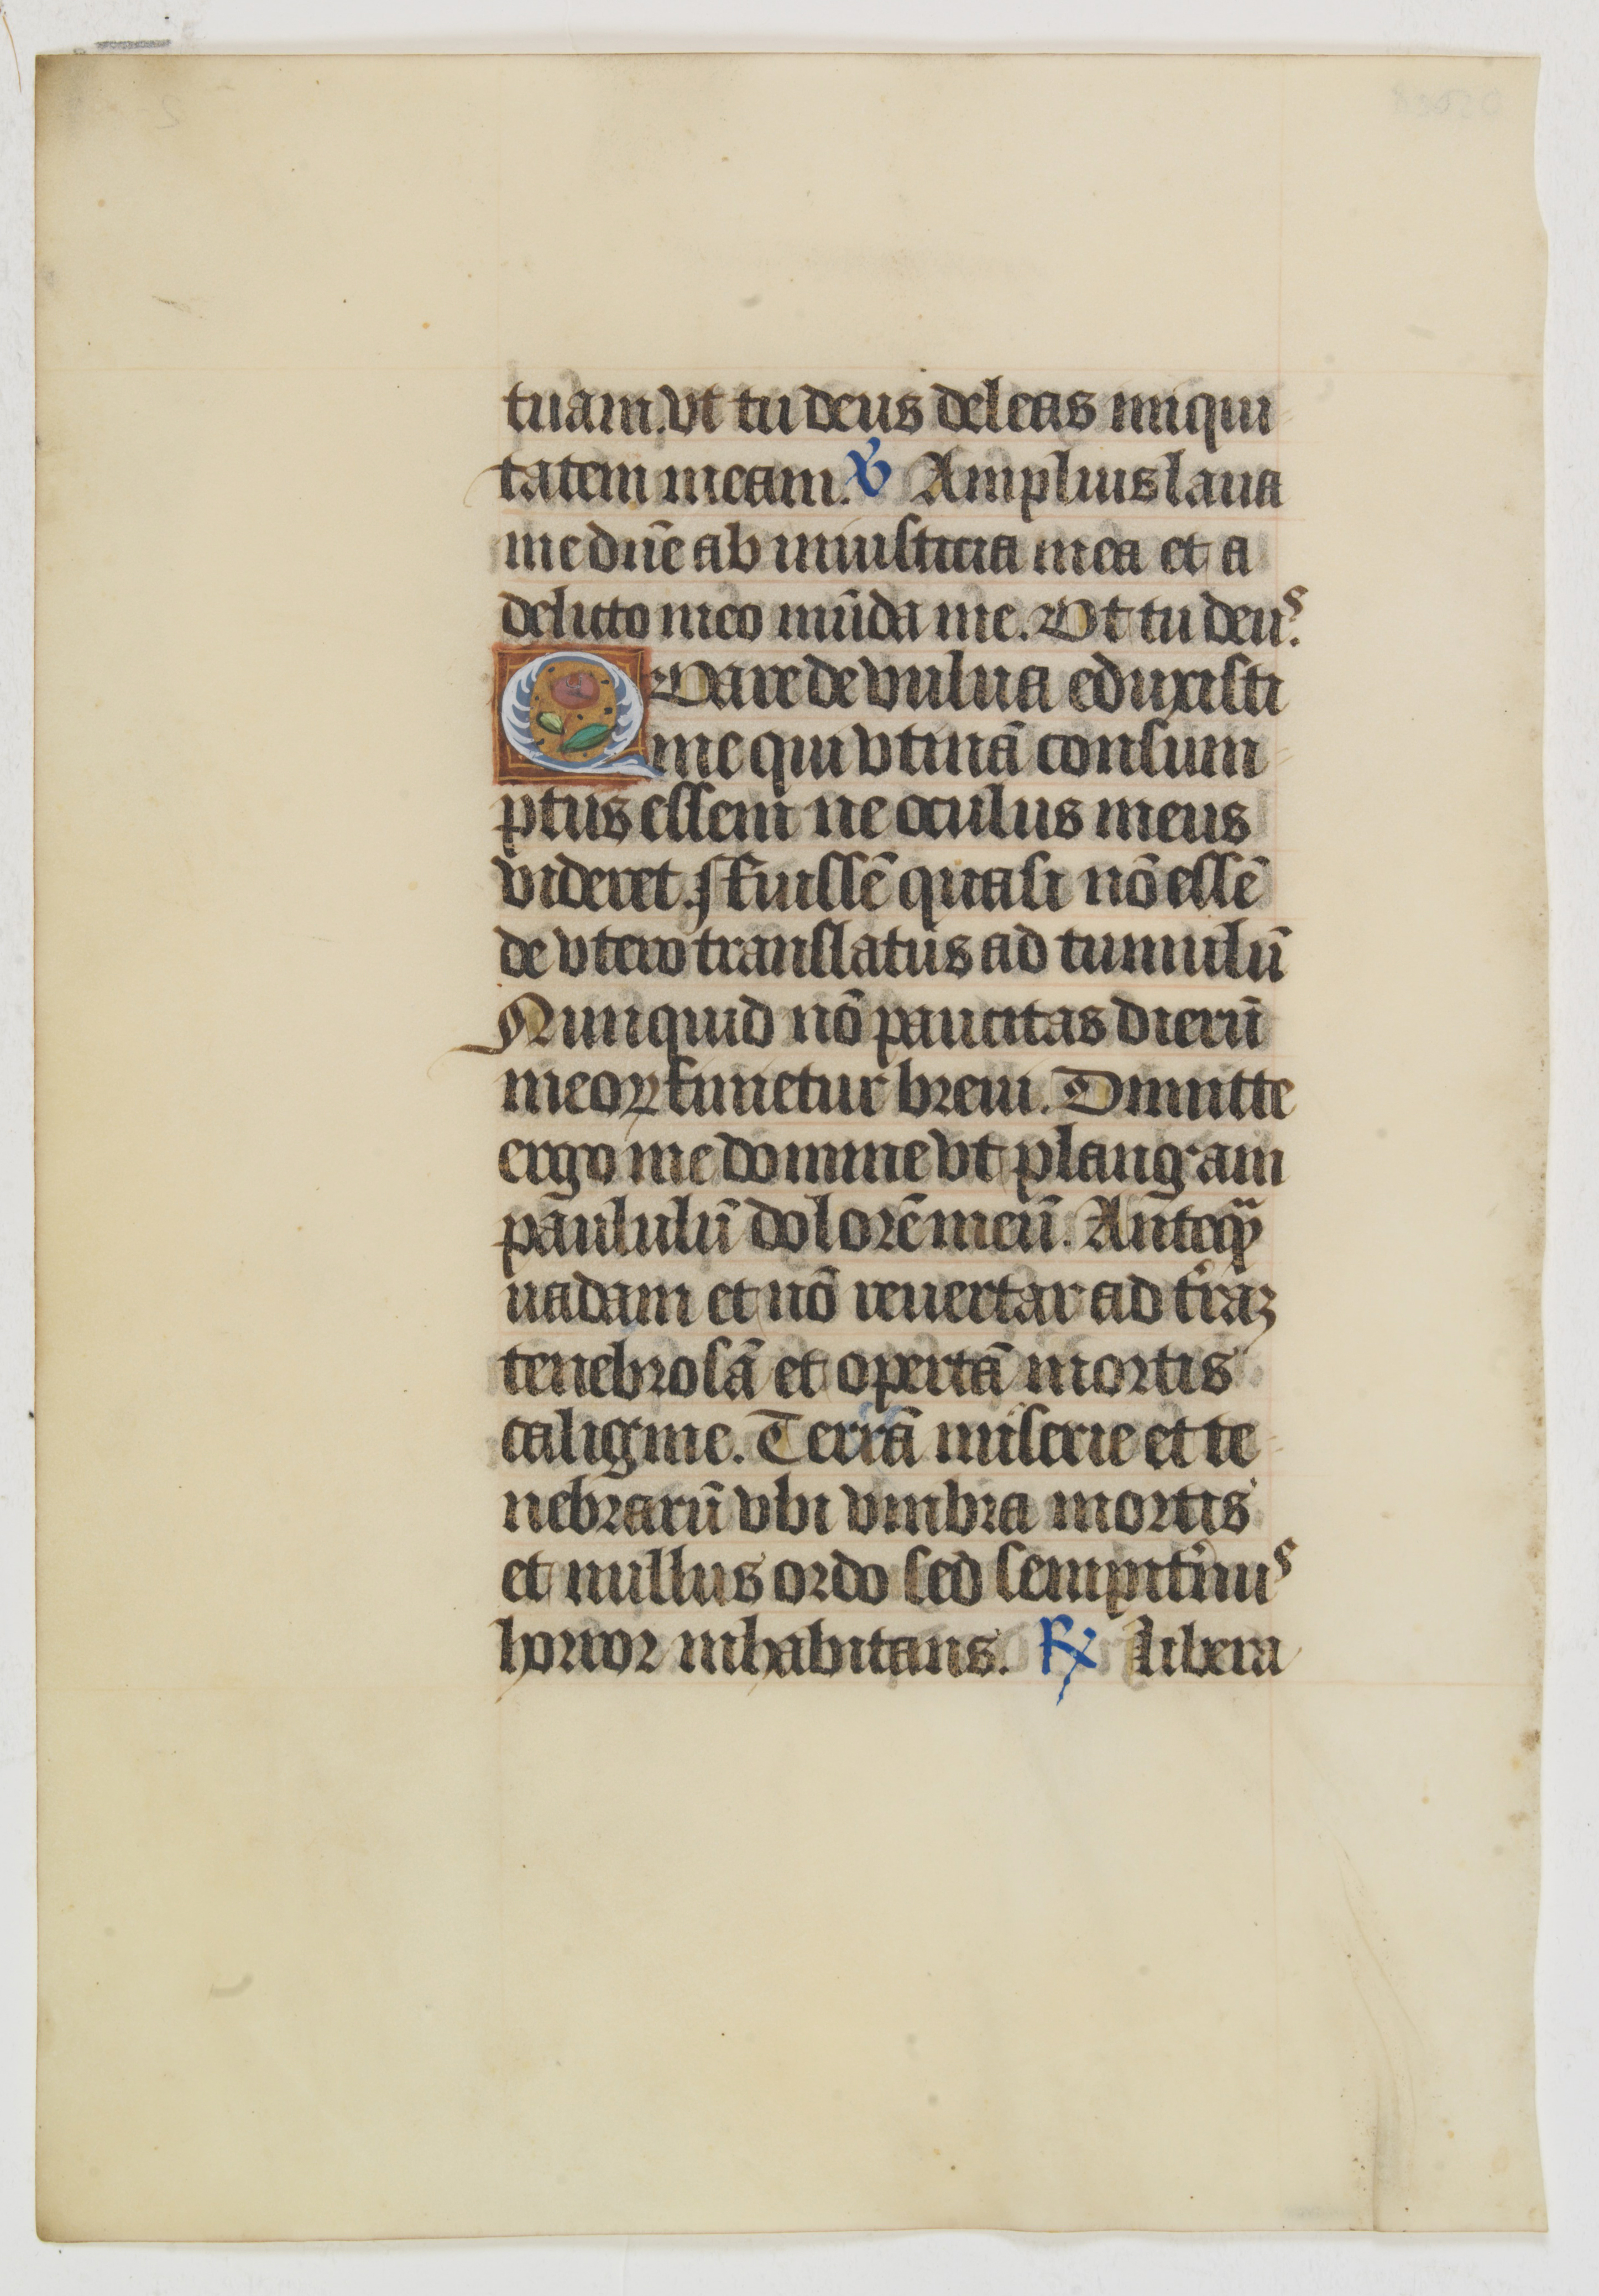 tuam. vt tu deus deleas iniqui
tatem meam. ℣ Amplius laua
me dñe ab iniusticia mea et a
delicto meo mūda me. Vt tu deuˢ.
QVare de vulua eduxisti
me qui vtinā consum
ptus essem ne oculus meus
videret. Fuissē quasi nō essē
de vtero translatus ad tumulū
Nunquid nō paucitas dierū
meoꝝ finietur breui. Dimitte
ergo me domine vt plangam
paululū dolorē meū. Anteqᷓ
uadam et nō reuertar ad t'raꝫ
tenebrosā et opertā mortis
caligine. Terrā miserie et te
nebrarū vbi vmbra mortis
et nullus ordo sed sempit'nuˢ
horror inhabitans. ℟ Libera